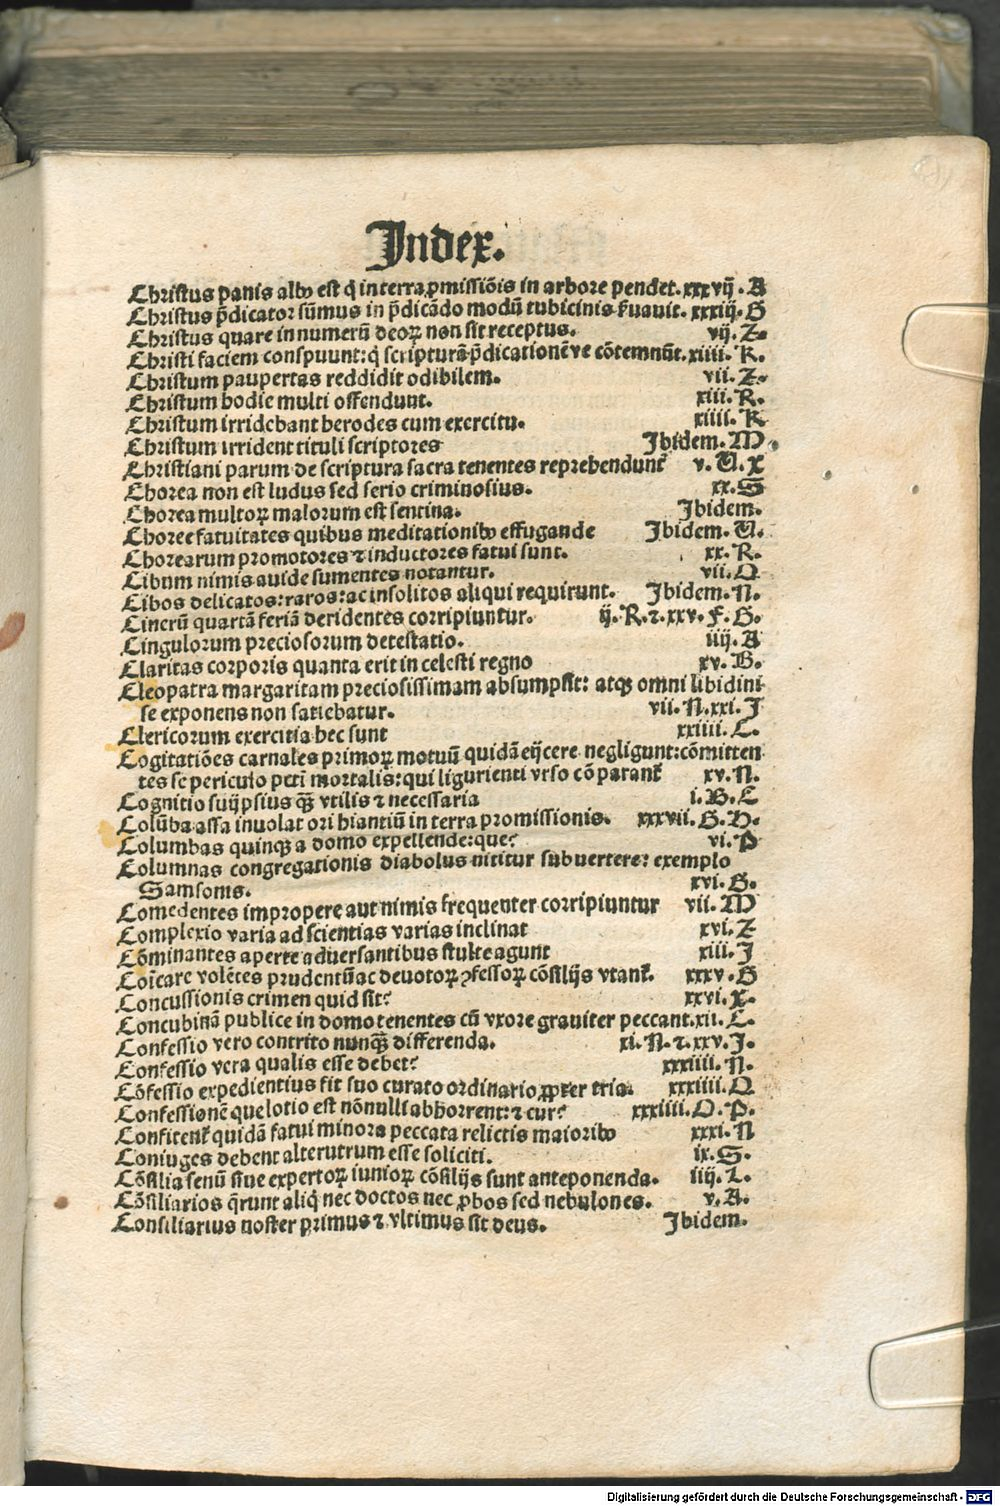 Index.
Christus panis albꝰ est q̇ in terra ꝓmissiōis in arbore pendet. xxxvij. A
Christus p̄dicator sūmus in p̄dicādo modū tubicinis ẜuauit. xxxiij. G
Christus quare in numerū deoꝝ non sit receptus. vij. Z.
Christi faciem conspuunt: q̇ scripturā p̄dicationēve cōtemnūt. xiiii. K.
Christum paupertas reddidit odibilem. vii. Z.
Christum hodie multi offendunt. xiii. R.
Christum irridebant herodes cum exercitu. xiiii. K
Christum irrident tituli scriptores Ibidem. M.
Christiani parum de scriptura sacra tenentes reprehenduntᷣ v. U. X
Chorea non est ludus sed serio criminosius. xx. S
Chorea multoꝝ malorum est sentina. Ibidem.
Choree fatuitates quibus meditationibꝰ effugande Ibidem. U.
Chorearum promotores ⁊ inductores fatui sunt. xx. R.
Cibum nimis auide sumentes notantur. vii. O
Cibos delicatos: raros: ac insolitos aliqui requirunt. Ibidem. N.
Cinerū quartā feriā deridentes corripiuntur. ij. R. ⁊. xxv. F. G.
Cingulorum preciosorum detestatio. iiij. A
Claritas corporis quanta erit in celesti regno xv. B.
Cleopatra margaritam preciosissimam absumpsit: atqꝫ omni libidini
se exponens non satiebatur. vii. N. xxi. I
Clericorum exercitia hec sunt xxiiii. C.
Cogitatiōes carnales primoꝝ motuū quidā eijcere negligunt: cōmitten
tes se periculo pcti mortalis: qui ligurienti vrso cōparantᷣ xv. N.
Cognitio suijpsius qꝫ̄ vtilis ⁊ necessaria i. B. C
Colūba assa inuolat ori hiantiū in terra promissionis. xxxvii. G. H.
Columbas quinqꝫ a domo expellende: que? vi. P
Columnas congregationis diabolus nititur subuertere: exemplo
Samsonis. xvi. G.
Comedentes impropere aut nimis frequenter corripiuntur vii. M
Complexio varia ad scientias varias inclinat xvi. Z
Cōminantes aperte aduersantibus stulte agunt xiii. I
Coīcare volētes prudentū ac deuotoꝝ ꝯfessoꝝ cōsilijs vtantᷣ. xxxv. G
Concussionis crimen quid sit? xxvi. X.
Concubinā publice in domo tenentes cū vxore grauiter peccant. xii. C.
Confessio vero contrito nunqꝫ̄ differenda. xi. N. ⁊. xxv. I.
Confessio vera qualis esse debet? xxxiiii. N.
Cōfessio expedientius fit suo curato ordinario, ꝓpter tria. xxxiiii. O
Confessionē que lotio est nōnulli abhorrent: ⁊ cur? xxxiiii. O. P.
Confitentᷣ quidā fatui minora peccata relictis maioribꝰ xxxi. N
Coniuges debent alterutrum esse soliciti. ix. S.
Cōsilia senū siue expertoꝝ iunioꝝ cōsilijs sunt anteponenda. iiij. L.
Cōsiliarios q̄runt aliq̇ nec doctos nec ꝓbos sed nebulones. v. A.
Consiliarius noster primus ⁊ vltimus sit deus. Ibidem.
Digitalisierung gefördert durch die Deutsche Forschungsgemeinschaft - DFG